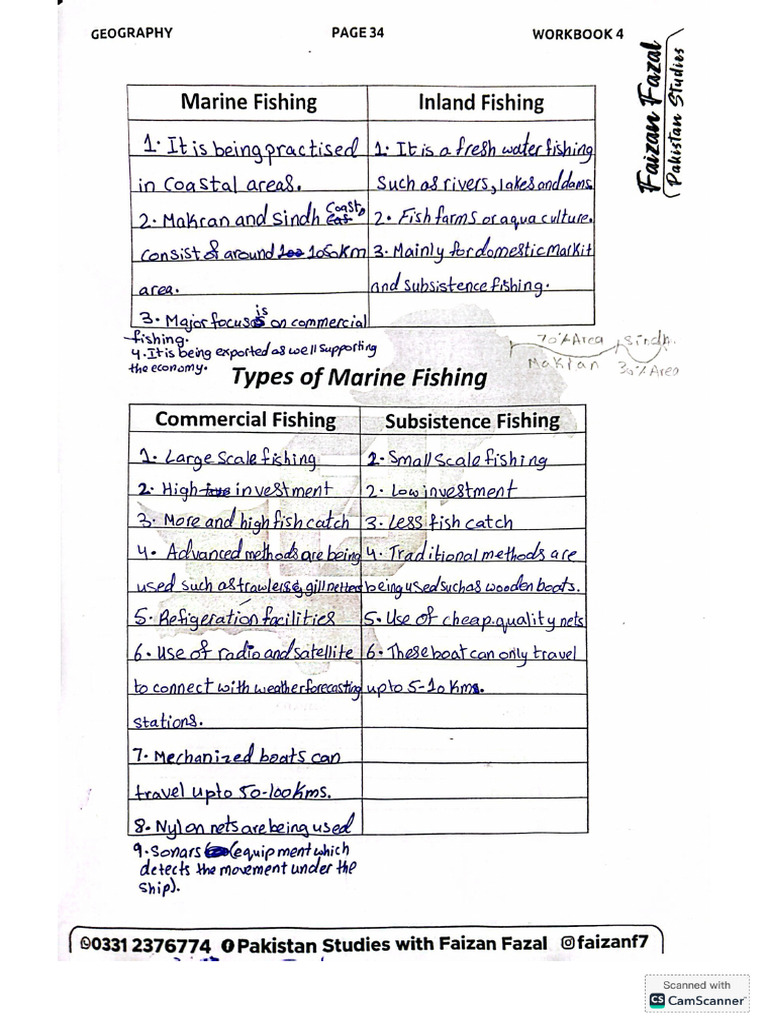 GEOGRAPHY PAGE 34 WORKBOOK 4
Faizan Fazal
Pakistan Studies
Marine Fishing
1. It is being practised
in coastal areas.
2. Makran and Sindh Coast
consist of around 1050Km
area.
3. Major focus is on commercial
fishing.
4. It is being exported as well supporting
the economy.
Inland Fishing
1. It is a fresh water fishing
Such as rivers, lakes and dams
2. Fish farms or aqua culture.
3. Mainly for domestic markit
and subsistence fishing.
70% Area Sindh.
Makran 30% Area
Types of Marine Fishing
Commercial Fishing
1. Large scale fishing
2. High investment
3. More and high fish catch
4. Advanced methods are being
used such as trawlers, gillnetters
5. Refigeration facilities
6. Use of radio and satellite
to connect with weather forecasting
stations.
7. Mechanized boats can
travel upto 50-100Kms.
8. Nylon nets are being used
9. Sonars (equipment which
detects the movement under the
ship).
Subsistence Fishing
1. Small scale fishing
2. Low investment
3. Less fish catch
4. Traditional methods are
being used suchas wooden boats.
5. Use of cheap quality nets
6. These boat can only travel
upto 5-10 Kms.
0331 2376774 Pakistan Studies with Faizan Fazal faizanf7
Scanned with
CS CamScanner